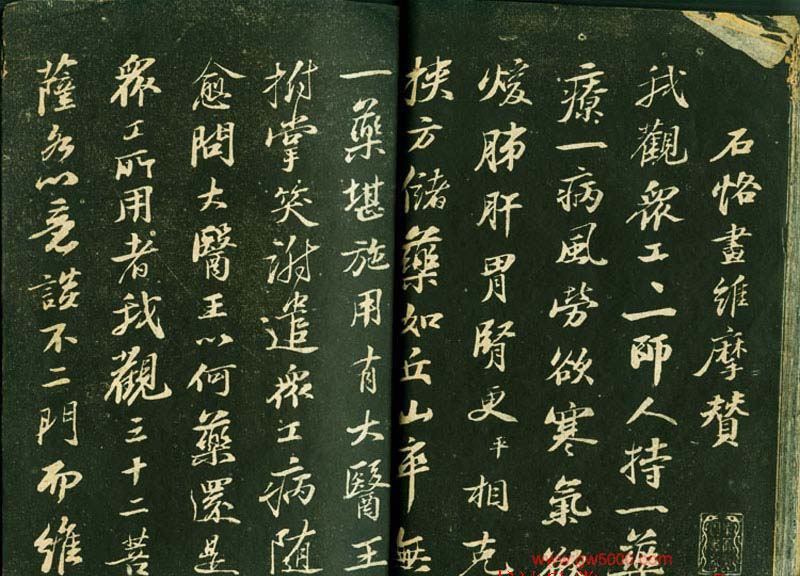 石恪畫維摩贊
我觀眾工〻一師人持一藥
療一病風勞欲寒氣欲
煖肺肝胃腎更平相克
挾方儲藥如丘山卒無
一藥堪施用有大醫王
拊掌笑謝遣眾工病隨
愈問大醫王以何藥還是
眾工所用者我觀三十二菩
薩各以意談不二門而維